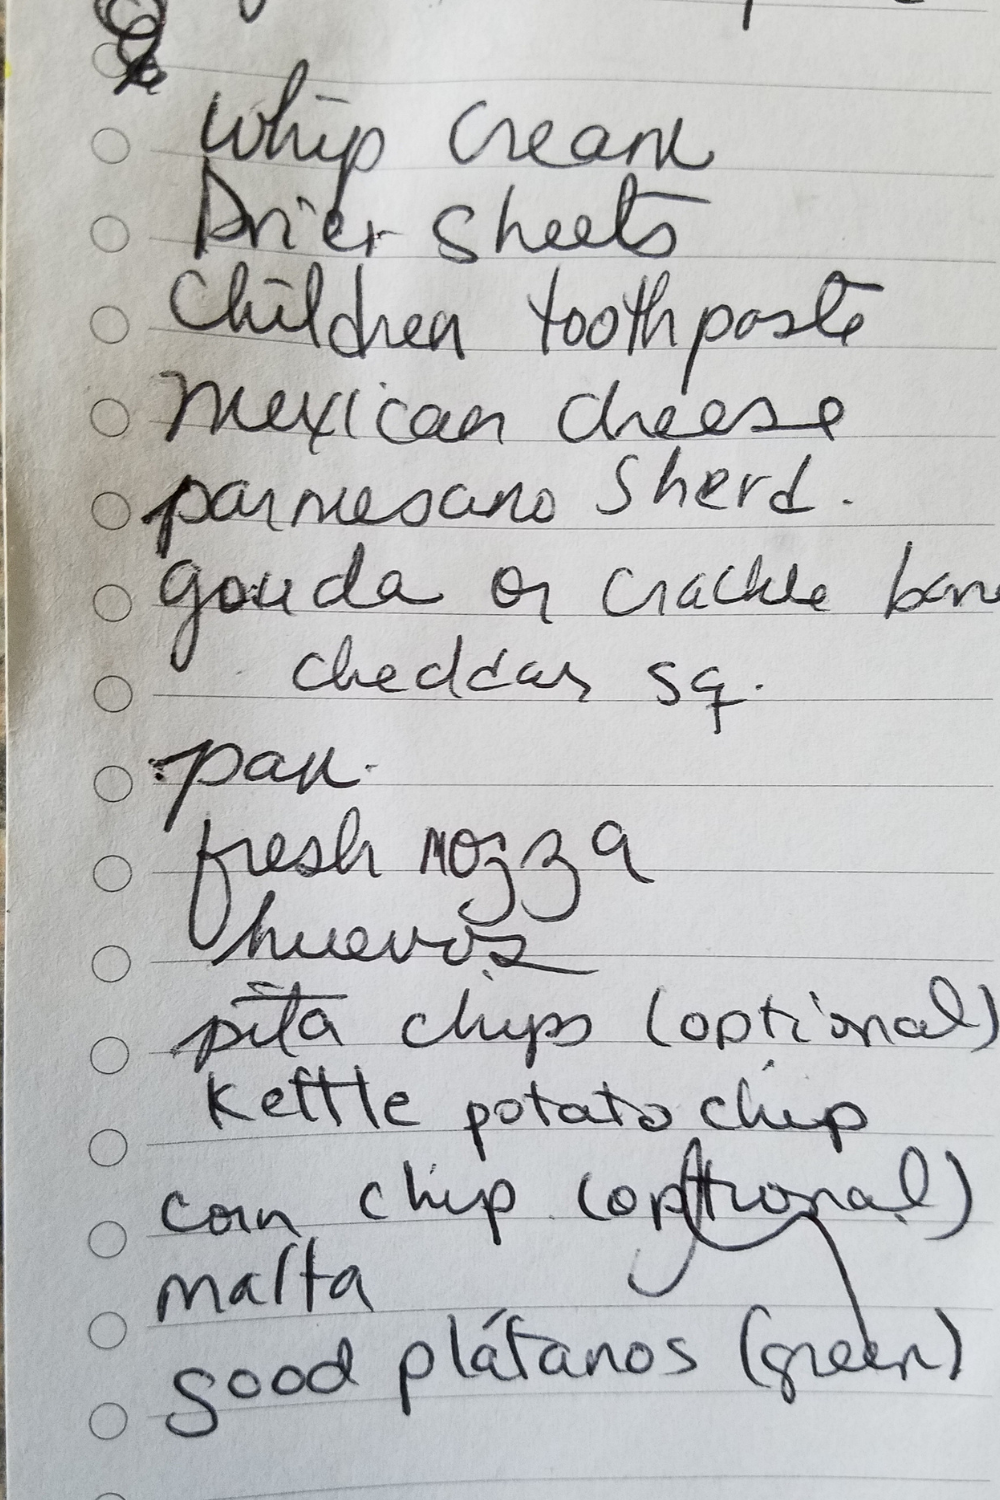 whip cream
Drier sheets
Children toothpaste
Mexican cheese
parmesano Sherd.
gouda or crackle barre
cheddar sq.
pan.
fresh mozza
huevos
pita chips (optional)
Kettle potato chip
corn chip (optional)
malta
good plátanos (green)